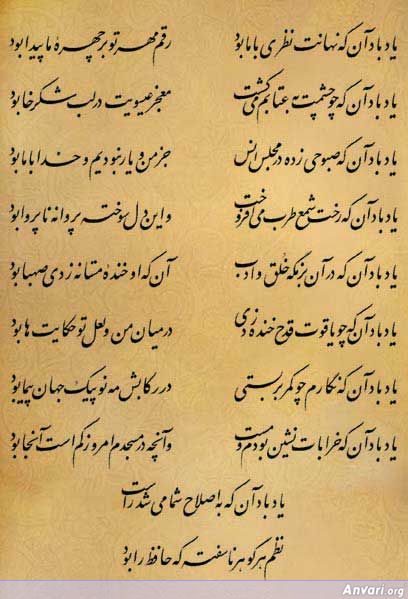 یاد باد آن که نهانت نظری با ما بود رقم مهر تو بر چهرهٔ ما پیدا بود
یاد باد آن که چو چشمت به عتابم می‌کشت معجز عیسویت در لب شکرخا بود
یاد باد آن که صبوحی زده در مجلس انس جز من و یار نبودیم و خدا با ما بود
یاد باد آن که رخت شمع طرب می‌افروخت واین دل سوخته پروانه ناپروا بود
یاد باد آن که در آن بزمگه خلق و ادب آن که او خندهٔ مستانه زدی صهبا بود
یاد باد آن که چو یاقوت قدح خنده زدی در میان من و لعل تو حکایت ها بود
یاد باد آن که نگارم چو کمر بربستی در رکابش مه نو پیک جهان پیما بود
یاد باد آن که خرابات نشین بودم و مست وآنچه در مسجدم امروز کم است آنجا بود
یاد باد آن که به اصلاح شما می شد راست
نظم هر گوهر ناسفته که حافظ را بود
Anvari.org